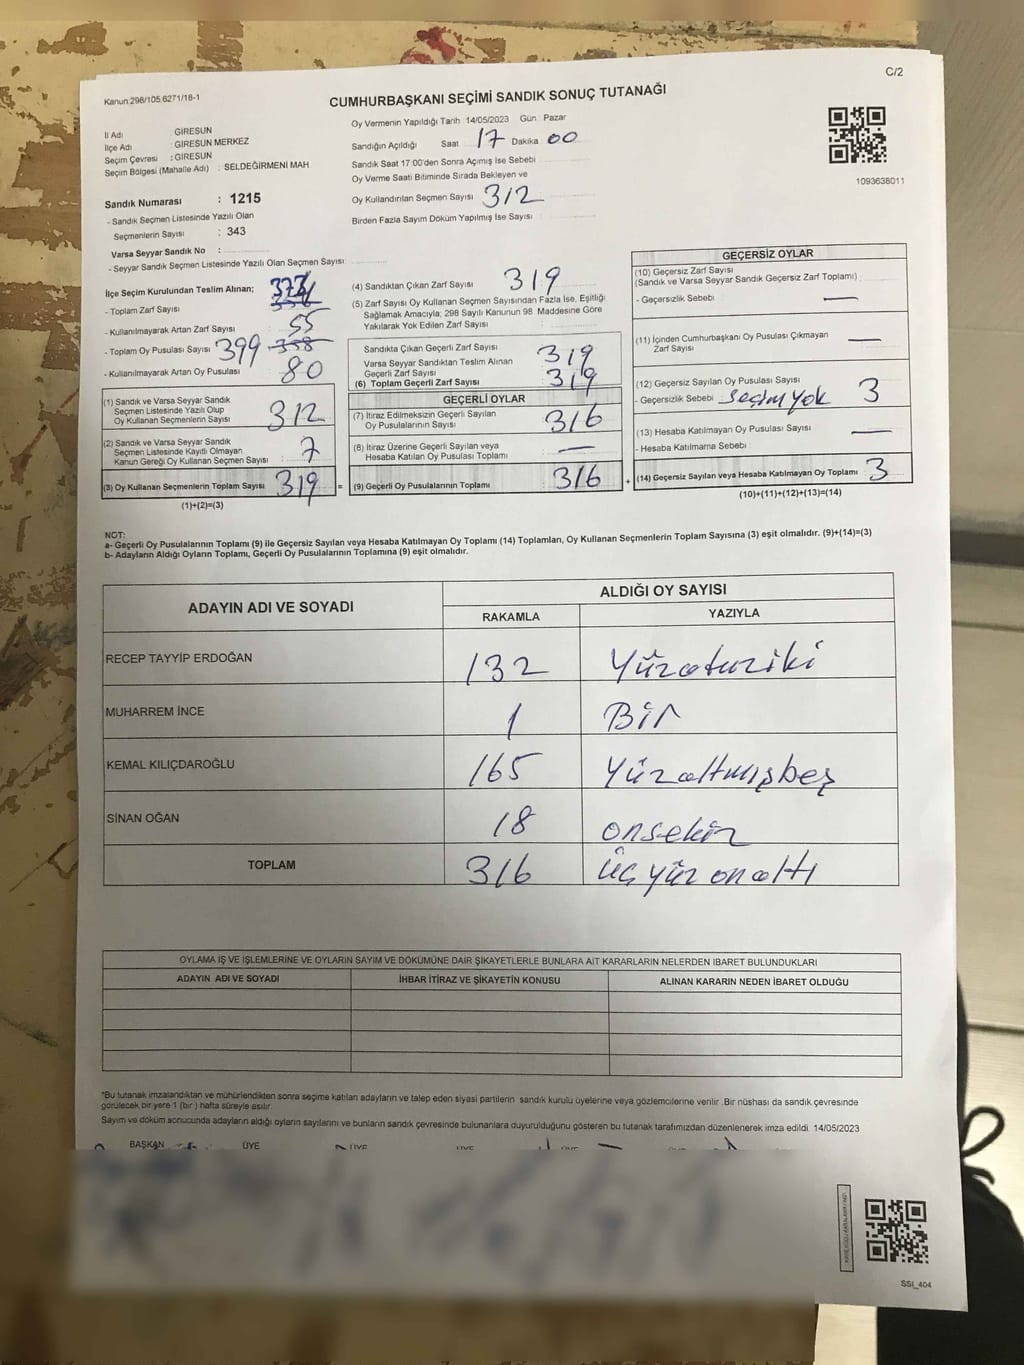 C/2
Kanun:298/105,6271/18-1
CUMHURBAŞKANI SEÇİMİ SANDIK SONUÇ TUTANAĞI
İl Adı : GİRESUN
İlçe Adı : GİRESUN MERKEZ
Seçim Çevresi : GİRESUN
Seçim Bölgesi (Mahalle Adı) : SELDEĞİRMENİ MAH
Sandık Numarası : 1215
- Sandık Seçmen Listesinde Yazılı Olan
Seçmenlerin Sayısı : 343
Varsa Seyyar Sandık No :
- Seyyar Sandık Seçmen Listesinde Yazılı Olan Seçmen Sayısı:
Oy Vermenin Yapıldığı Tarih 14/05/2023 Gün Pazar
Sandığın Açıldığı Saat 17 Dakika 00
Sandık Saat 17:00'den Sonra Açımış İse Sebebi
Oy Verme Saati Bitiminde Sırada Bekleyen ve
Oy Kullandırılan Seçmen Sayısı 312
Birden Fazla Sayım Döküm Yapılmış İse Sayısı :
1093638011
İlçe Seçim Kurulundan Teslim Alınan;
- Toplam Zarf Sayısı
- Kullanılmayarak Artan Zarf Sayısı 55
- Toplam Oy Pusulası Sayısı 399 338
- Kullanılmayarak Artan Oy Pusulası 80
(1) Sandık ve Varsa Seyyar Sandık
Seçmen Listesinde Yazılı Olup
Oy Kullanan Seçmenlerin Sayısı 312
(2) Sandık ve Varsa Seyyar Sandık
Seçmen Listesinde Kayıtlı Olmayan
Kanun Gereği Oy Kullanan Seçmen Sayısı 7
(3) Oy Kullanan Seçmenlerin Toplam Sayısı 319 =
(1)+(2)=(3)
(4) Sandıktan Çıkan Zarf Sayısı 319
(5) Zarf Sayısı Oy Kullanan Seçmen Sayısından Fazla İse, Eşitliği
Sağlamak Amacıyla; 298 Sayılı Kanunun 98. Maddesine Göre
Yakılarak Yok Edilen Zarf Sayısı :
Sandıkta Çıkan Geçerli Zarf Sayısı 319
Varsa Seyyar Sandıktan Teslim Alınan
Geçerli Zarf Sayısı
(6) Toplam Geçerli Zarf Sayısı 319
GEÇERLİ OYLAR
(7) İtiraz Edilmeksizin Geçerli Sayılan
Oy Pusulalarının Sayısı 316
(8) İtiraz Üzerine Geçerli Sayılan veya
Hesaba Katılan Oy Pusulası Toplamı —
(9) Geçerli Oy Pusulalarının Toplamı 316 +
GEÇERSİZ OYLAR
(10) Geçersiz Zarf Sayısı
(Sandık ve Varsa Seyyar Sandık Geçersiz Zarf Toplamı)
- Geçersizlik Sebebi —
(11) İçinden Cumhurbaşkanı Oy Pusulası Çıkmayan
Zarf Sayısı —
(12) Geçersiz Sayılan Oy Pusulası Sayısı
- Geçersizlik Sebebi seçim yok 3
(13) Hesaba Katılmayan Oy Pusulası Sayısı —
- Hesaba Katılmama Sebebi :
(14) Geçersiz Sayılan veya Hesaba Katılmayan Oy Toplamı 3
(10)+(11)+(12)+(13)=(14)
NOT:
a- Geçerli Oy Pusulalarının Toplamı (9) ile Geçersiz Sayılan veya Hesaba Katılmayan Oy Toplamı (14) Toplamları, Oy Kullanan Seçmenlerin Toplam Sayısına (3) eşit olmalıdır. (9)+(14)=(3)
b- Adayların Aldığı Oyların Toplamı, Geçerli Oy Pusulalarının Toplamına (9) eşit olmalıdır.
ADAYIN ADI VE SOYADI
ALDIĞI OY SAYISI
RAKAMLA YAZIYLA
RECEP TAYYİP ERDOĞAN 132 Yüzotuziki
MUHARREM İNCE 1 Bir
KEMAL KILIÇDAROĞLU 165 Yüzaltmışbeş
SİNAN OĞAN 18 onsekiz
TOPLAM 316 üçyüz onaltı
OYLAMA İŞ VE İŞLEMLERİNE VE OYLARIN SAYIM VE DÖKÜMÜNE DAİR ŞİKAYETLERLE BUNLARA AİT KARARLARIN NELERDEN İBARET BULUNDUKLARI
ADAYIN ADI VE SOYADI İHBAR İTİRAZ VE ŞİKAYETİN KONUSU ALINAN KARARIN NEDEN İBARET OLDUĞU
*Bu tutanak imzalandıktan ve mühürlendikten sonra seçime katılan adayların ve talep eden siyasi partilerin sandık kurulu üyelerine veya gözlemcilerine verilir .Bir nüshası da sandık çevresinde
görülecek bir yere 1 (bir ) hafta süreyle asılır.
Sayım ve döküm sonucunda adayların aldığı oyların sayılarını ve bunların sandık çevresinde bulunanlara duyurulduğunu gösteren bu tutanak tarafımızdan düzenlenerek imza edildi. 14/05/2023
BAŞKAN ÜYE ÜYE ÜYE
SSI_404